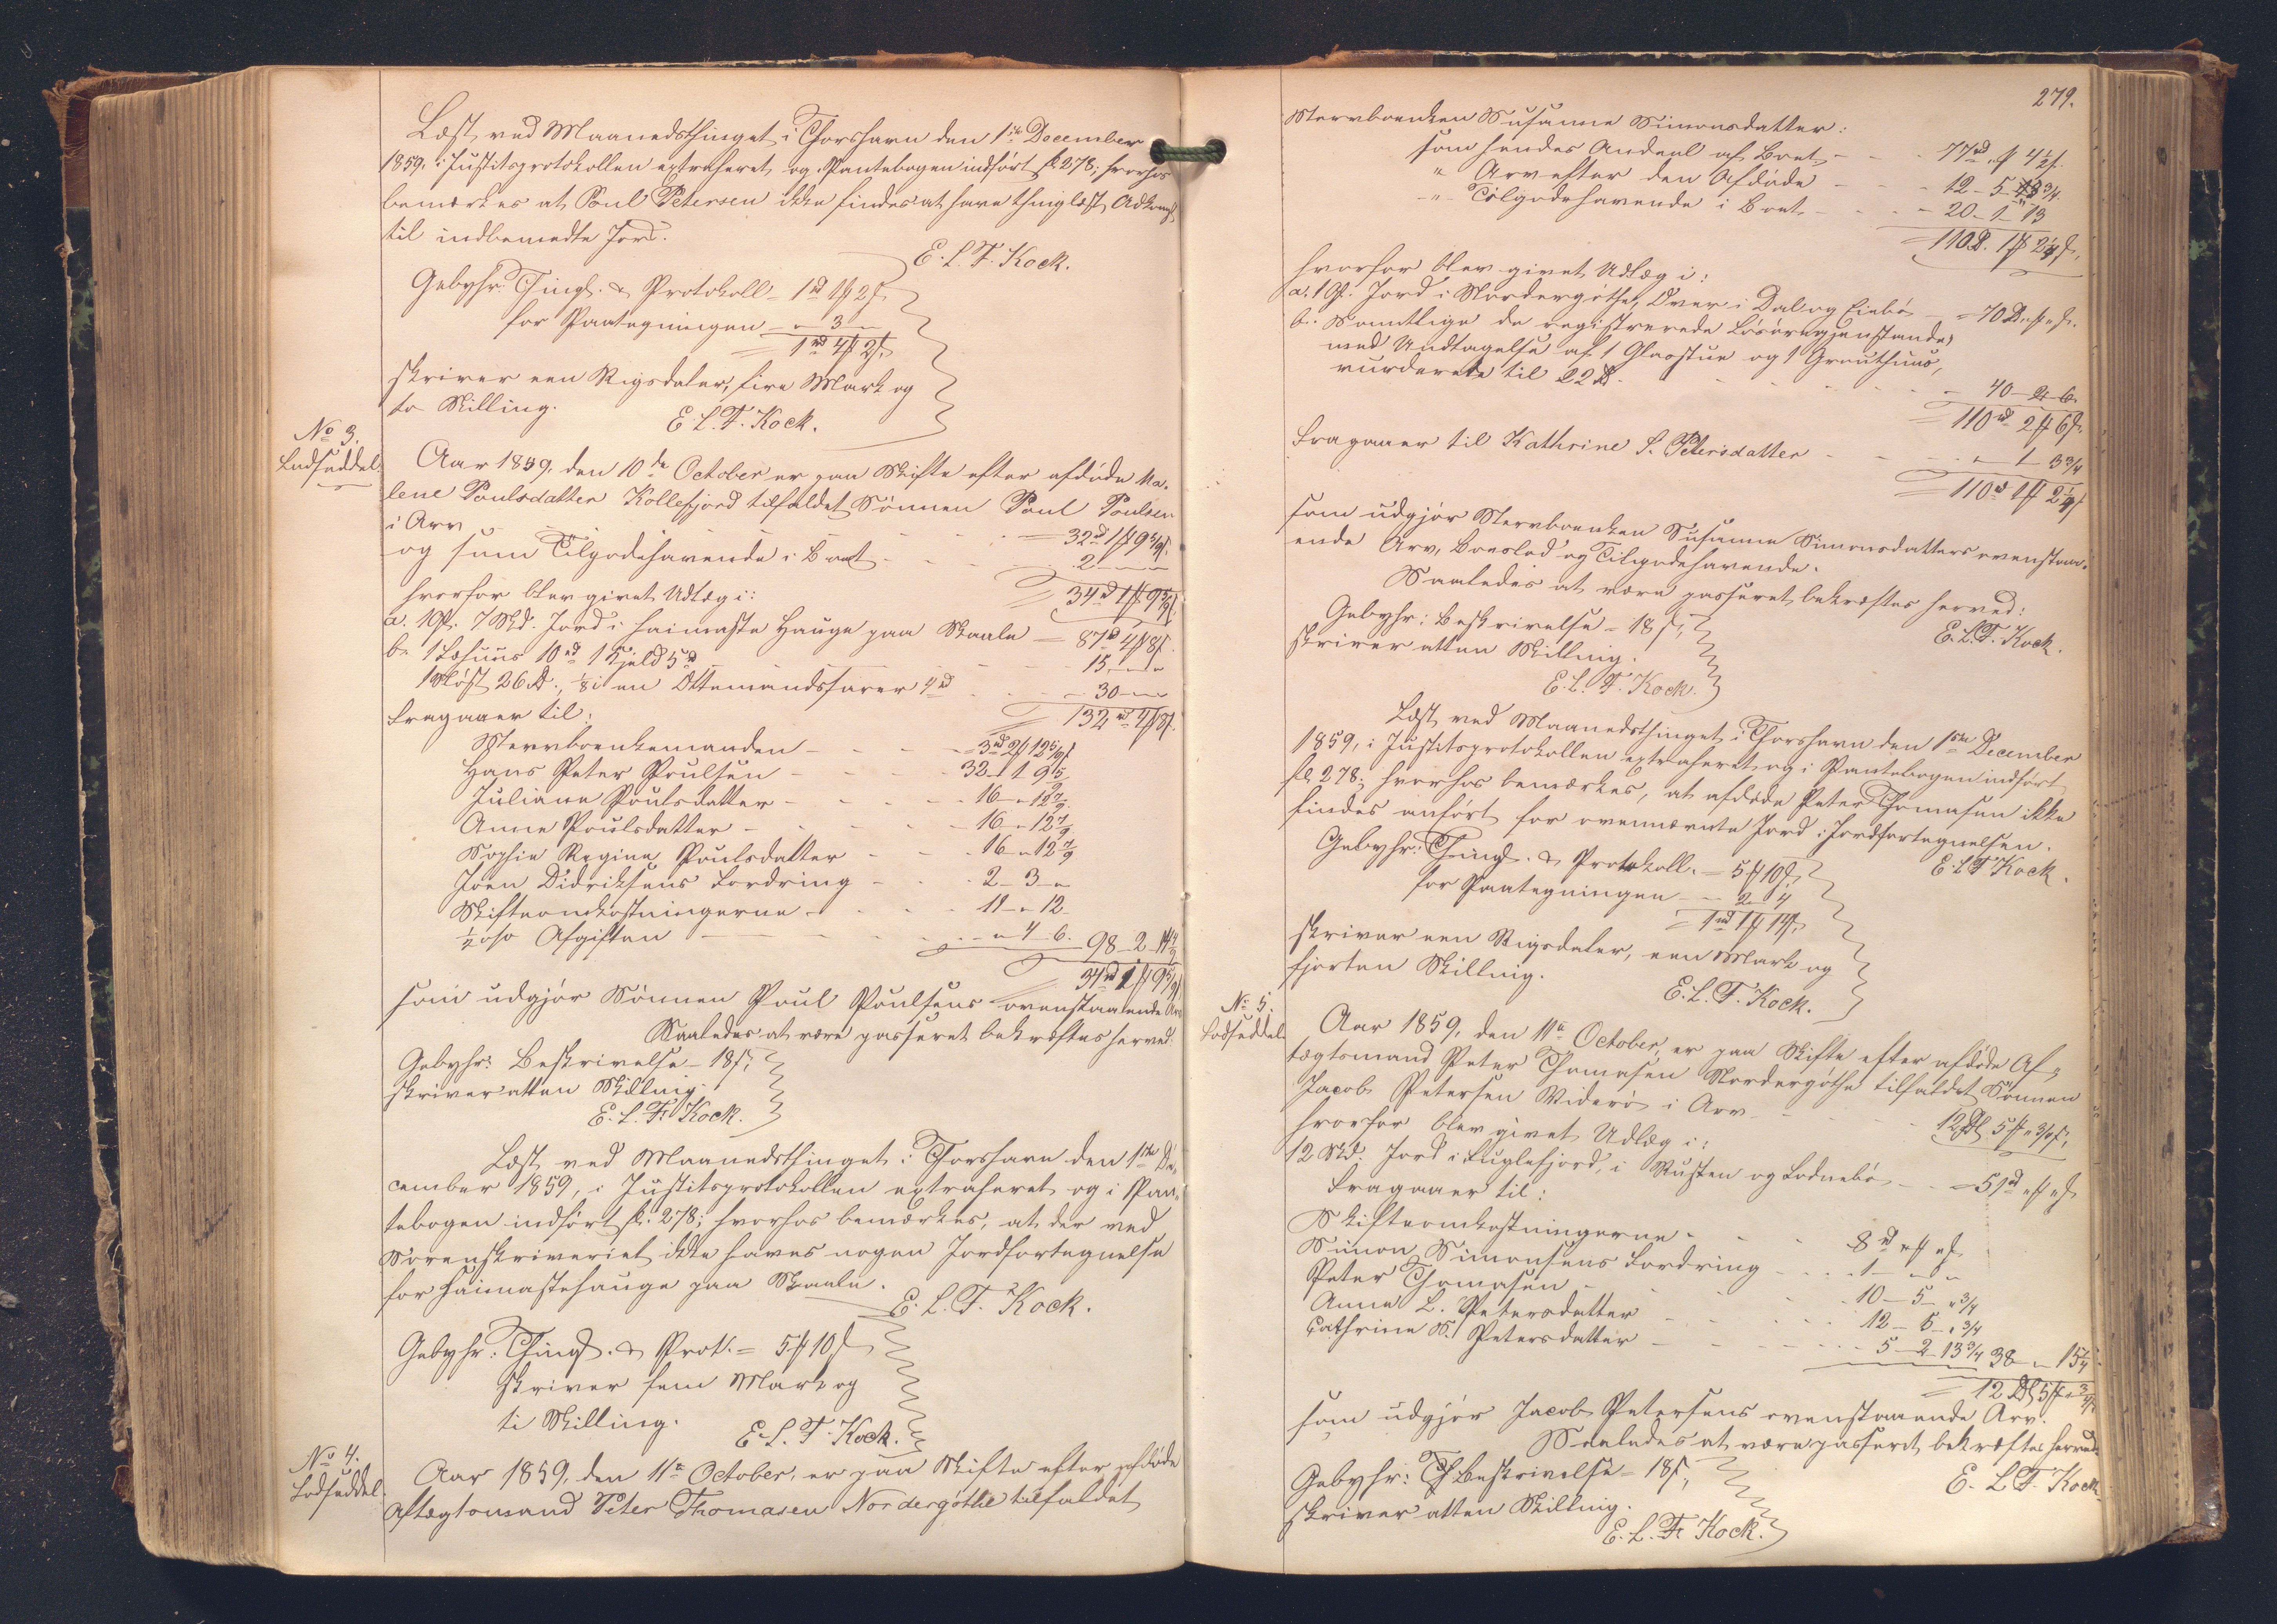 Læst ved Maanedsthinget i Thorshavn den 1ste December
1859, i Justitsprotokollen extraheret og Pantebogen indført fl. 278; hvorhos
bemærkes at Poul Petersen ikke findes at have thinglæst Adkomst
til indbemeldte Jord.
E. L. F. Kock.
Gebyhr: Thingl. & Protokoll = 1 rd 1 ß 2 s
for Paategningen - " 3 -
= 1 rd 4 ß 2 s,
skriver een Rigsdaler, fire Mark og
to Skilling.
E. L. F. Kock.
No 3.
Lodseddel.
Aar 1859, den 10de October er paa Skifte efter afdøde Ma-
lene Poulsdatter Kollefjord tilfaldet Sønnen Poul Poulsen
i Arv - - - 32 rd 1 ß 9 5/9 s
og som Tilgodehavende i Boet - - - 2 - " - "
= 34 rd 1 ß 9 5/9 s
hvorfor blev givet Udlæg i:
a. 1 Gl. 7 Skd. Jord i Haimasta Hauge paa Skaale = 87 rd 4 ß 8 s.
b. 1 Læhuus 10 rd 1 Kjeld 5 rd - - - 15 - " - "
1 Sløst 26 rd., 1/8 i en Ottemandsfarer 4 rd - - 30 - " - "
= 132 rd 4 ß 8 s.
Fragaaer til:
Stervboenkemanden - - - = 3 rd 2 ß 12 5/9 s
Hans Peter Poulsen - - - 32 - 1 9 5/9
Juliane Poulsdatter - - - 16 - " 12 7/9
Anne Poulsdatter - - - 16 - " 12 7/9
Sophie Regine Poulsdatter - - - 16 - " 12 7/9
Joen Didriksens Fordring - - - 2 - 3 - "
Skifteomkostningerne - - - 11 - " 12 -
1/2 o/o Afgiften - - - " - 4 - 6. 98 - 2 - 14 4/9
= 34 rd 1 ß 9 5/9 s
som udgjør Sønnen Poul Poulsens ovenstaaende Arv
Saaledes at være passeret bekræftes herved.
Gebyhr: Beskrivelse - 18 s,
skriver atten Skilling.
E. L. F. Kock.
Læst ved Maanedsthinget i Thorshavn den 1ste De-
cember 1859, i Justitsprotokollen extraheret og i Pan-
tebogen indført fl. 278; hvorhos bemærkes, at der ved
Sorenskriveriet ikke haves nogen Jordfortegnelse
for Haimastehauge paa Skaale.
E. L. F. Kock.
Gebyhr: Thingl. & Prot. = 5 ß 10 s
skriver fem Mark og
ti Skilling.
E. L. F. Kock.
No 4.
Lodseddel.
Aar 1859, den 11te October, er paa Skifte efter afdøde
Aftægtsmand Peter Thomasen Nordergøthe tilfaldet
279.
Stervboenken Susanne Simonsdatter:
som hendes Andeel af Boet - - - 77 rd " ß 4 1/2 s.
" Arv efter den Afdøde - - - 12 - 5 - " 3/4.
" Tilgodehavende i Boet - - - 20 - 1 - 13
= 110 rd. 1 ß 2 1/4 s,
hvorfor blev givet Udlæg i:
a. 1 Gl. Jord i Nordergøthe, Over i Dal og Einbø - = 70 rd " ß " s.
b. Samtlige de registrerede Løsøregjenstande,
med Undtagelse af 1 Glasstue og 1 Grouthuus,
vurderede til 22 rd. - - - 40 - 2 - 6.
= 110 rd 2 ß 6 s.
Fragaaer til Kathrine S. Petersdatter - - - " 1 3 3/4
= 110 rd 1 ß 2 1/4 s
som udgjør Stervboenken Susanne Simonsdatters ovenstaa-
ende Arv, Boeslod og Tilgodehavende.
Saaledes at være passeret bekræftes herved:
E. L. F. Kock.
Gebyhr: Beskrivelse = 18 s,
skriver atten Skilling.
E. L. F. Kock.
Læst ved Maanedsthinget i Thorshavn den 1ste December
1859, i Justitsprotokollen extraheret og i Pantebogen indført
fl. 278; hvorhos bemærkes, at afdøde Peter Thomasen ikke
findes anført for ovennævnte Jord i Jordfortegnelsen.
E. L. F. Kock.
Gebyhr: Thingl. & Protokoll. = 5 ß 10 s
for Paategningen - - 2 - 4
= 1 rd 1 ß 14 s,
skriver een Rigsdaler, een Mark og
fjorten Skilling.
E. L. F. Kock.
No 5.
Lodseddel
Aar 1859, den 11te October, er paa Skifte efter afdøde Af-
tægtsmand Peter Thomasen Nordergøthe tilfaldet Sønnen
Jacob Petersen Viderø i Arv - - - 12 rd 5 ß " 3/4 s,
hvorfor blev givet Udlæg i:
12 Skd. Jord i Fuglefjord, i Rusten og Lodnebø - - = 51 rd " ß " s
Fragaaer til:
Skifteomkostningerne - - - 8 rd " ß " s
Simon Simonsens Fordring - - - 1 - " - "
Peter Thomasen - - - 10 - 5 - " 3/4
Anne L. Petersdatter - - - 12 - 5 - " 3/4
Cathrine S. Petersdatter - - - 5 - 2 - 13 3/4 38 - " 15 1/4
= 12 rd 5 ß " 3/4 s
som udgjør Jacob Petersens ovenstaaende Arv.
Saaledes at være passeret bekræftes herved.
E. L. F. Kock.
Gebyhr: Beskrivelse = 18 s,
skriver atten Skilling.
E. L. F. Kock.